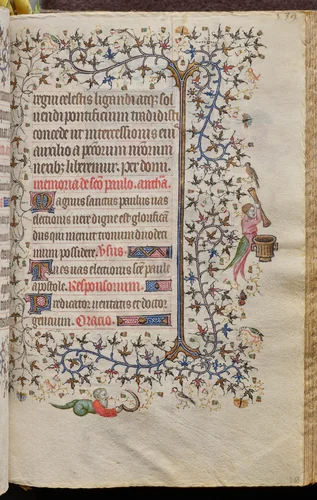 regni celestis ligandi atq; sol
uendi pontificium tradidisti
concede ut intercessionis eius
auxilio a pctorum nostrorum
nexib; liberemur. per domi.
memoria de sco paulo. antha.
Magnus sanctus paulus uas
electionis uere digne est glorifica
dus qui meruit tronum duode
num possidere. Vsus.
Tu es uas electionis sce paule
apostole. Responsorium.
Predicator ueritatis et doctor
gencium. Oracio.